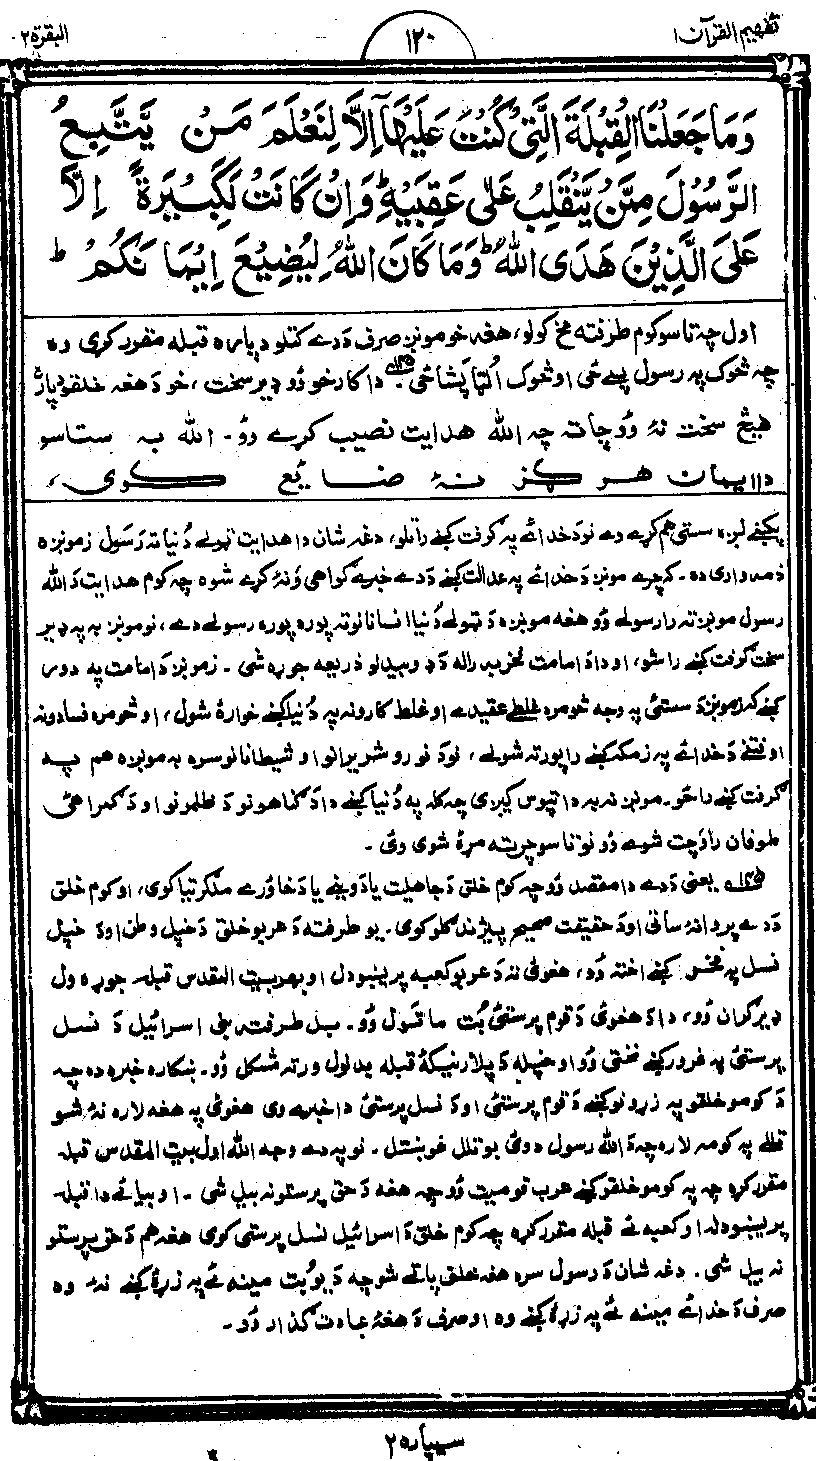 تفہیم القرآن ۱
۱۲۰
البقرة ۲
وَمَا جَعَلْنَا الْقِبْلَةَ الَّتِيْ كُنْتَ عَلَيْهَآ اِلَّا لِنَعْلَمَ مَنْ يَّتَّبِعُ
الرَّسُوْلَ مِمَّنْ يَّنْقَلِبُ عَلٰى عَقِبَيْهِ ؕ وَاِنْ كَانَتْ لَكَبِيْرَةً اِلَّا
عَلَى الَّذِيْنَ هَدَى اللّٰهُ ؕ وَمَا كَانَ اللّٰهُ لِيُضِيْعَ اِيْمَانَكُمْ ؕ
اول چه تاسو کوم طرفته مخ کولو، هغه خو مونږ صرف دَ دے کتلو دپاره قبله مقرر کړی وه
چه څوک په رسول پسے ځی او څوک اُلټا پشا ځی ۱۴۵؎۔ دا کار خو ډیر سخت، خو دَ هغه خلقو دپاره
هېڅ سخت نهٔ وُو چاته چه الله هدایت نصیب کړے وُو۔ الله به ستاسو
دا ایمان هرګز نهٔ ضائع کوی،
پکښے لږه سستی هم کړے وے نو دَ خدائے په ګرفت کښے راتلو، دغه شان دا هدایت ټولے دُنیا ته رَسَول زمونږه
ذمه واری ده۔ که چرے مونږ دَ خدائے په عدالت کښے دَ دے خبرے ګواهی وَنهٔ کړے شوه چه کوم هدایت دَ الله
رسول مونږ ته رارسولے وُو هغه مونږه دَ ټولے دُنیا انسانانو ته پوره پوره رسولے دے، نو مونږ به په ډیر
سخت ګرفت کښے راشو، او دا دَ امامت فخر به راله دَ ډوبیدلو ذریعه جوړه شی۔ زمونږ دَ امامت په دور
کښے که زمونږ دَ سستئ په وجه څومره غلطے عقیدے او غلط کارونه په دُنیا کښے خوارهٔ شول، او څومره فسادونه
او فتنے دَ خدائے په زمکه کښے راپورته شولے، نو دَ نورو شریرانو او شیطانانو سره به مونږه هم په
ګرفت کښے راځو۔ مونږ نه به دا تپوس کیږی چه کله په دُنیا کښے دا دَ ګناهونو دَ ظلمونو او دَ ګمراهئ
طوفان راوچت شوے وُو نو تاسو چرته مرهٔ شوی وئ۔
۱۴۵؎ یعنی دَ دے دا مقصد وُو چه کوم خلق دَ جاهلیت
دَ دے
نسل په فخر کښے اخته وُو، هغوئ نه دَ عربو کعبه پریښودل او بهر بیت المقدس قبله جوړهٔ ول
ډیر ګران وُو، دا دَ هغوئ دَ قوم پرستئ بُت ماتَول وُو۔ بل طرفته بنی اسرائیل دَ نسل
پرستئ په غرور کښے وُو او خپله دَ پلار نیکهٔ قبله بدلول ورته مشکل وُو۔ ښکاره خبره ده چه
دَ کومو خلقو په زړونو کښے دَ قوم پرستئ او دَ نسل پرستئ دا خبرے وی هغوئ په هغه لاره نهٔ شو
تللے په کومه لاره چه دَ الله رسول دوئ بوتلل غوښتل۔ نو په دے وجه الله اول بیت المقدس قبله
مقرر کړه چه په کومو خلقو کښے عرب قومیت وُو چه هغه دَ حق پرستو نه بیل شی۔ او بیا ئے دا قبله
پریښودله او کعبه ئے قبله مقرر کړه چه کوم خلق دَ اسرائیل نسل پرستی کوی هغه هم دَ حق پرستو
نه بیل شی۔ دغه شان دَ رسول سره هغه خلق پاتے شو چه دَ یو بُت مینه ئے په زړهٔ کښے نهٔ وه
صرف دَ خدائے مینه ئے په زړهٔ کښے وه او صرف دَ هغهٔ عبادت ګذار وُو۔
سیپاره ۲